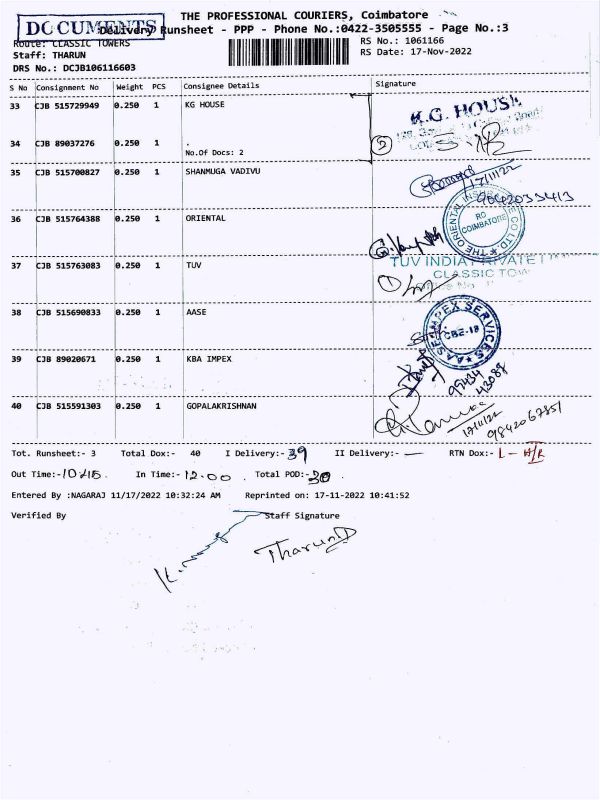 THE PROFESSIONAL COURIERS, Coimbatore
DOCUMENTS
Delivery Runsheet - PPP - Phone No.:0422-3505555 - Page No.:3
Route: CLASSIC TOWERS
RS No.: 1061166
Staff: THARUN
RS Date: 17-Nov-2022
DRS No.: DCJB106116603
S No Consignment No Weight PCS Consignee Details Signature
33 CJB 515729949 0.250 1 KG HOUSE
K.G. HOUSE
34 CJB 89037276 0.250 1 .
No.Of Docs: 2
2
35 CJB 515700827 0.250 1 SHANMUGA VADIVU
17/11/22
9042033413
36 CJB 515764388 0.250 1 ORIENTAL
THE ORIENTAL INSURANCE CO LTD
RO
COIMBATORE
37 CJB 515763083 0.250 1 TUV
TUV INDIA PRIVATE
CLASSIC TOW
38 CJB 515690833 0.250 1 AASE
AASE IMPEX SERVICES
CBE-18
39 CJB 89020671 0.250 1 KBA IMPEX
99434
43088
40 CJB 515591303 0.250 1 GOPALAKRISHNAN
17/11/22
9842067851
Tot. Runsheet:- 3 Total Dox:- 40 I Delivery:- 39 II Delivery:- — RTN Dox:- 1 - H/R
Out Time:- 10.45 In Time:- 12.00 Total POD:- 30
Entered By :NAGARAJ 11/17/2022 10:32:24 AM Reprinted on: 17-11-2022 10:41:52
Verified By Staff Signature
Tharun